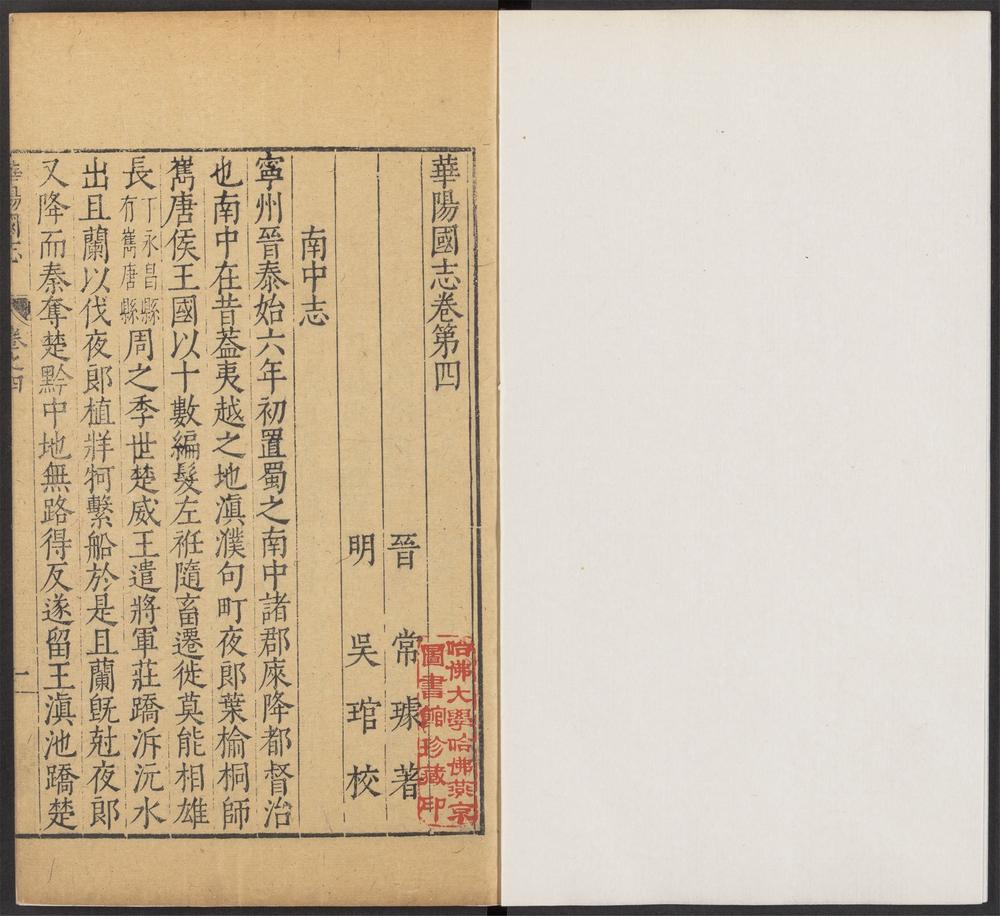 華陽國志卷第四
晉 常璩 著
明 吳琯 校
南中志
寧州晉泰始六年初置蜀之南中諸郡庲降都督治
也南中在昔蓋夷越之地滇濮句町夜郎葉榆桐師
嶲唐侯王國以十數編髮左衽隨畜遷徙莫能相雄
長丁永昌縣有嶲唐縣周之季世楚威王遣將軍莊蹻泝沅水
出且蘭以伐夜郎植牂牁繫船於是且蘭既尅夜郎
又降而秦奪楚黔中地無路得反遂留王滇池蹻楚
華陽國志 卷之四 一
哈佛大學哈佛燕京
圖書館珍藏印